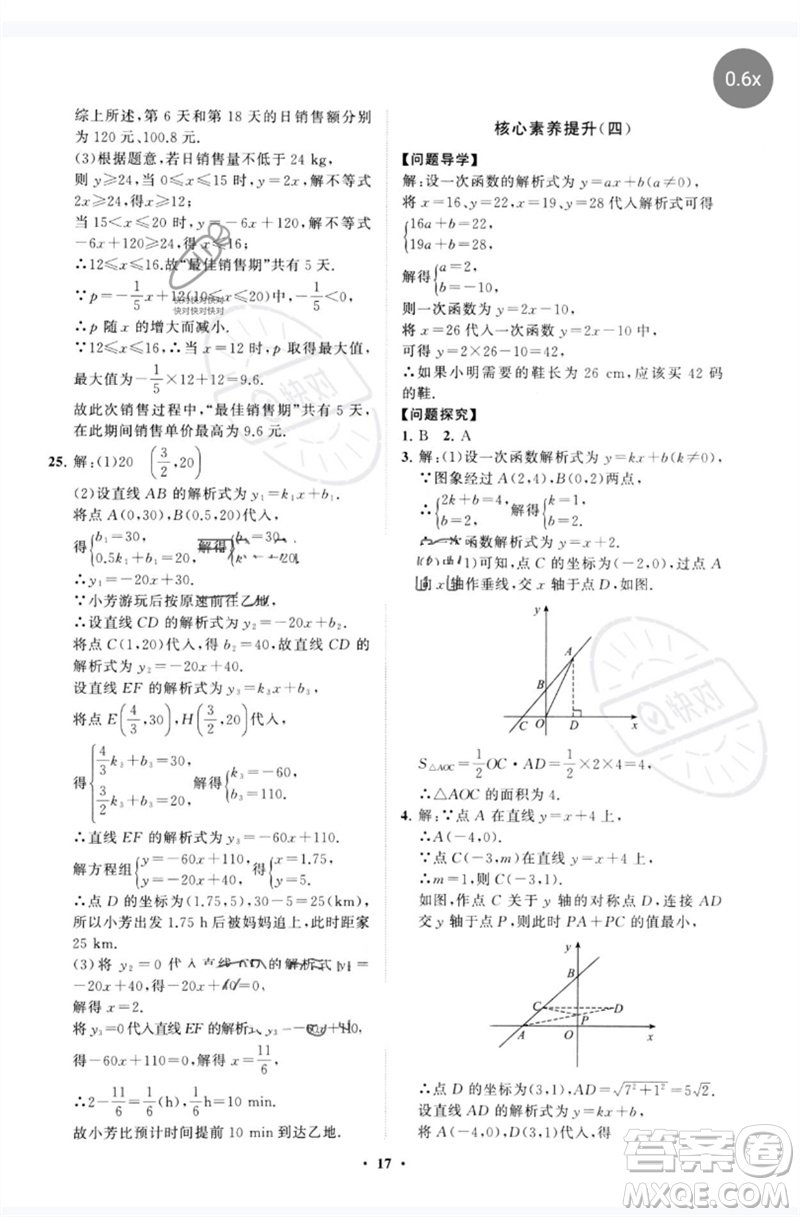 0.6x
综上所述,第 6 天和第 18 天的日销售额分别
为 120 元、100.8 元.
(3)根据题意,若日销售量不低于 24 kg,
则 y≥24,当 0≤x≤15 时,y=2x,解不等式
2x≥24,得 x≥12;
当 15<x≤20 时,y=-6x+120,解不等式
-6x+120≥24,得 x≤16;
∴12≤x≤16.故“最佳销售期”共有 5 天.
∵p=-1/5x+12(10≤x≤20)中,-1/5<0,
∴p 随 x 的增大而减小.
∵12≤x≤16,∴当 x=12 时,p 取得最大值,
最大值为-1/5×12+12=9.6.
故此次销售过程中,“最佳销售期”共有 5 天,
在此期间销售单价最高为 9.6 元.
25. 解:(1)20 (3/2,20)
(2)设直线 AB 的解析式为 y₁=k₁x+b₁.
将点 A(0,30),B(0.5,20)代入,
得{b₁=30, 0.5k₁+b₁=20, 解得
∴y₁=-20x+30.
∵小芳游玩后按原速前往乙地,
∴设直线 CD 的解析式为 y₂=-20x+b₂.
将点 C(1,20)代入,得 b₂=40,故直线 CD 的
解析式为 y₂=-20x+40.
设直线 EF 的解析式为 y₃=k₃x+b₃,
将点 E(4/3,30),H(3/2,20)代入,
得{4/3k₃+b₃=30, 3/2k₃+b₃=20, 解得{k₃=-60, b₃=110.
∴直线 EF 的解析式为 y₃=-60x+110.
解方程组{y=-60x+110, y=-20x+40, 得{x=1.75, y=5.
∴点 D 的坐标为(1.75,5),30-5=25(km).
所以小芳出发 1.75 h后被妈妈追上,此时距家
25 km.
(3)将 y₂=0 代入直线 的解析式
-20x+40,得-20x+40=0,
解得 x=2.
将 y₃=0代入直线EF的解析
得-60x+110=0,解得 x=11/6,
∴2-11/6=1/6(h),1/6 h=10 min.
故小芳比预计时间提前 10 min 到达乙地.
快对快对快对
快对快对快对
快对
核心素养提升(四)
【问题导学】
解:设一次函数的解析式为 y=ax+b(a≠0),
将 x=16,y=22,x=19,y=28代入解析式可得
{16a+b=22, 19a+b=28,
解得{a=2, b=-10,
则一次函数的解析式为 y=2x-10,
将 x=26 代入一次函数 y=2x-10 中,
可得 y=2×26-10=42.
∴如果小明需要的鞋长为 26 cm,应该买 42 码
的鞋.
【问题探究】
1. B 2. A
3. 解:(1)设一次函数解析式为 y=kx+b(k≠0),
∵图象经过 A(2,4),B(0,2)两点,
∴{2k+b=4, b=2, 解得{k=1, b=2.
函数解析式为 y=x+2.
1)可知,点 C 的坐标为(-2,0),过点 A
向 x 轴作垂线,交 x 轴于点 D,如图.
y
A
B
C
O
D
x
S△AOC=1/2OC·AD=1/2×2×4=4,
∴△AOC 的面积为 4.
4. 解:∵点 A 在直线 y=x+4 上,
∴A(-4,0).
∵点 C(-3,m)在直线 y=x+4 上,
∴m=1,则 C(-3,1).
如图,作点 C 关于 y 轴的对称点 D,连接 AD
交 y 轴于点 P,则此时 PA+PC 的值最小.
y
C
D
P
A
O
x
∴点 D 的坐标为(3,1),AD=√(7²+1²)=5√2.
设直线 AD 的解析式为 y=kx+b,
将 A(-4,0),D(3,1)代入,得
快对
· 17 ·
答案圈
MXQE.COM